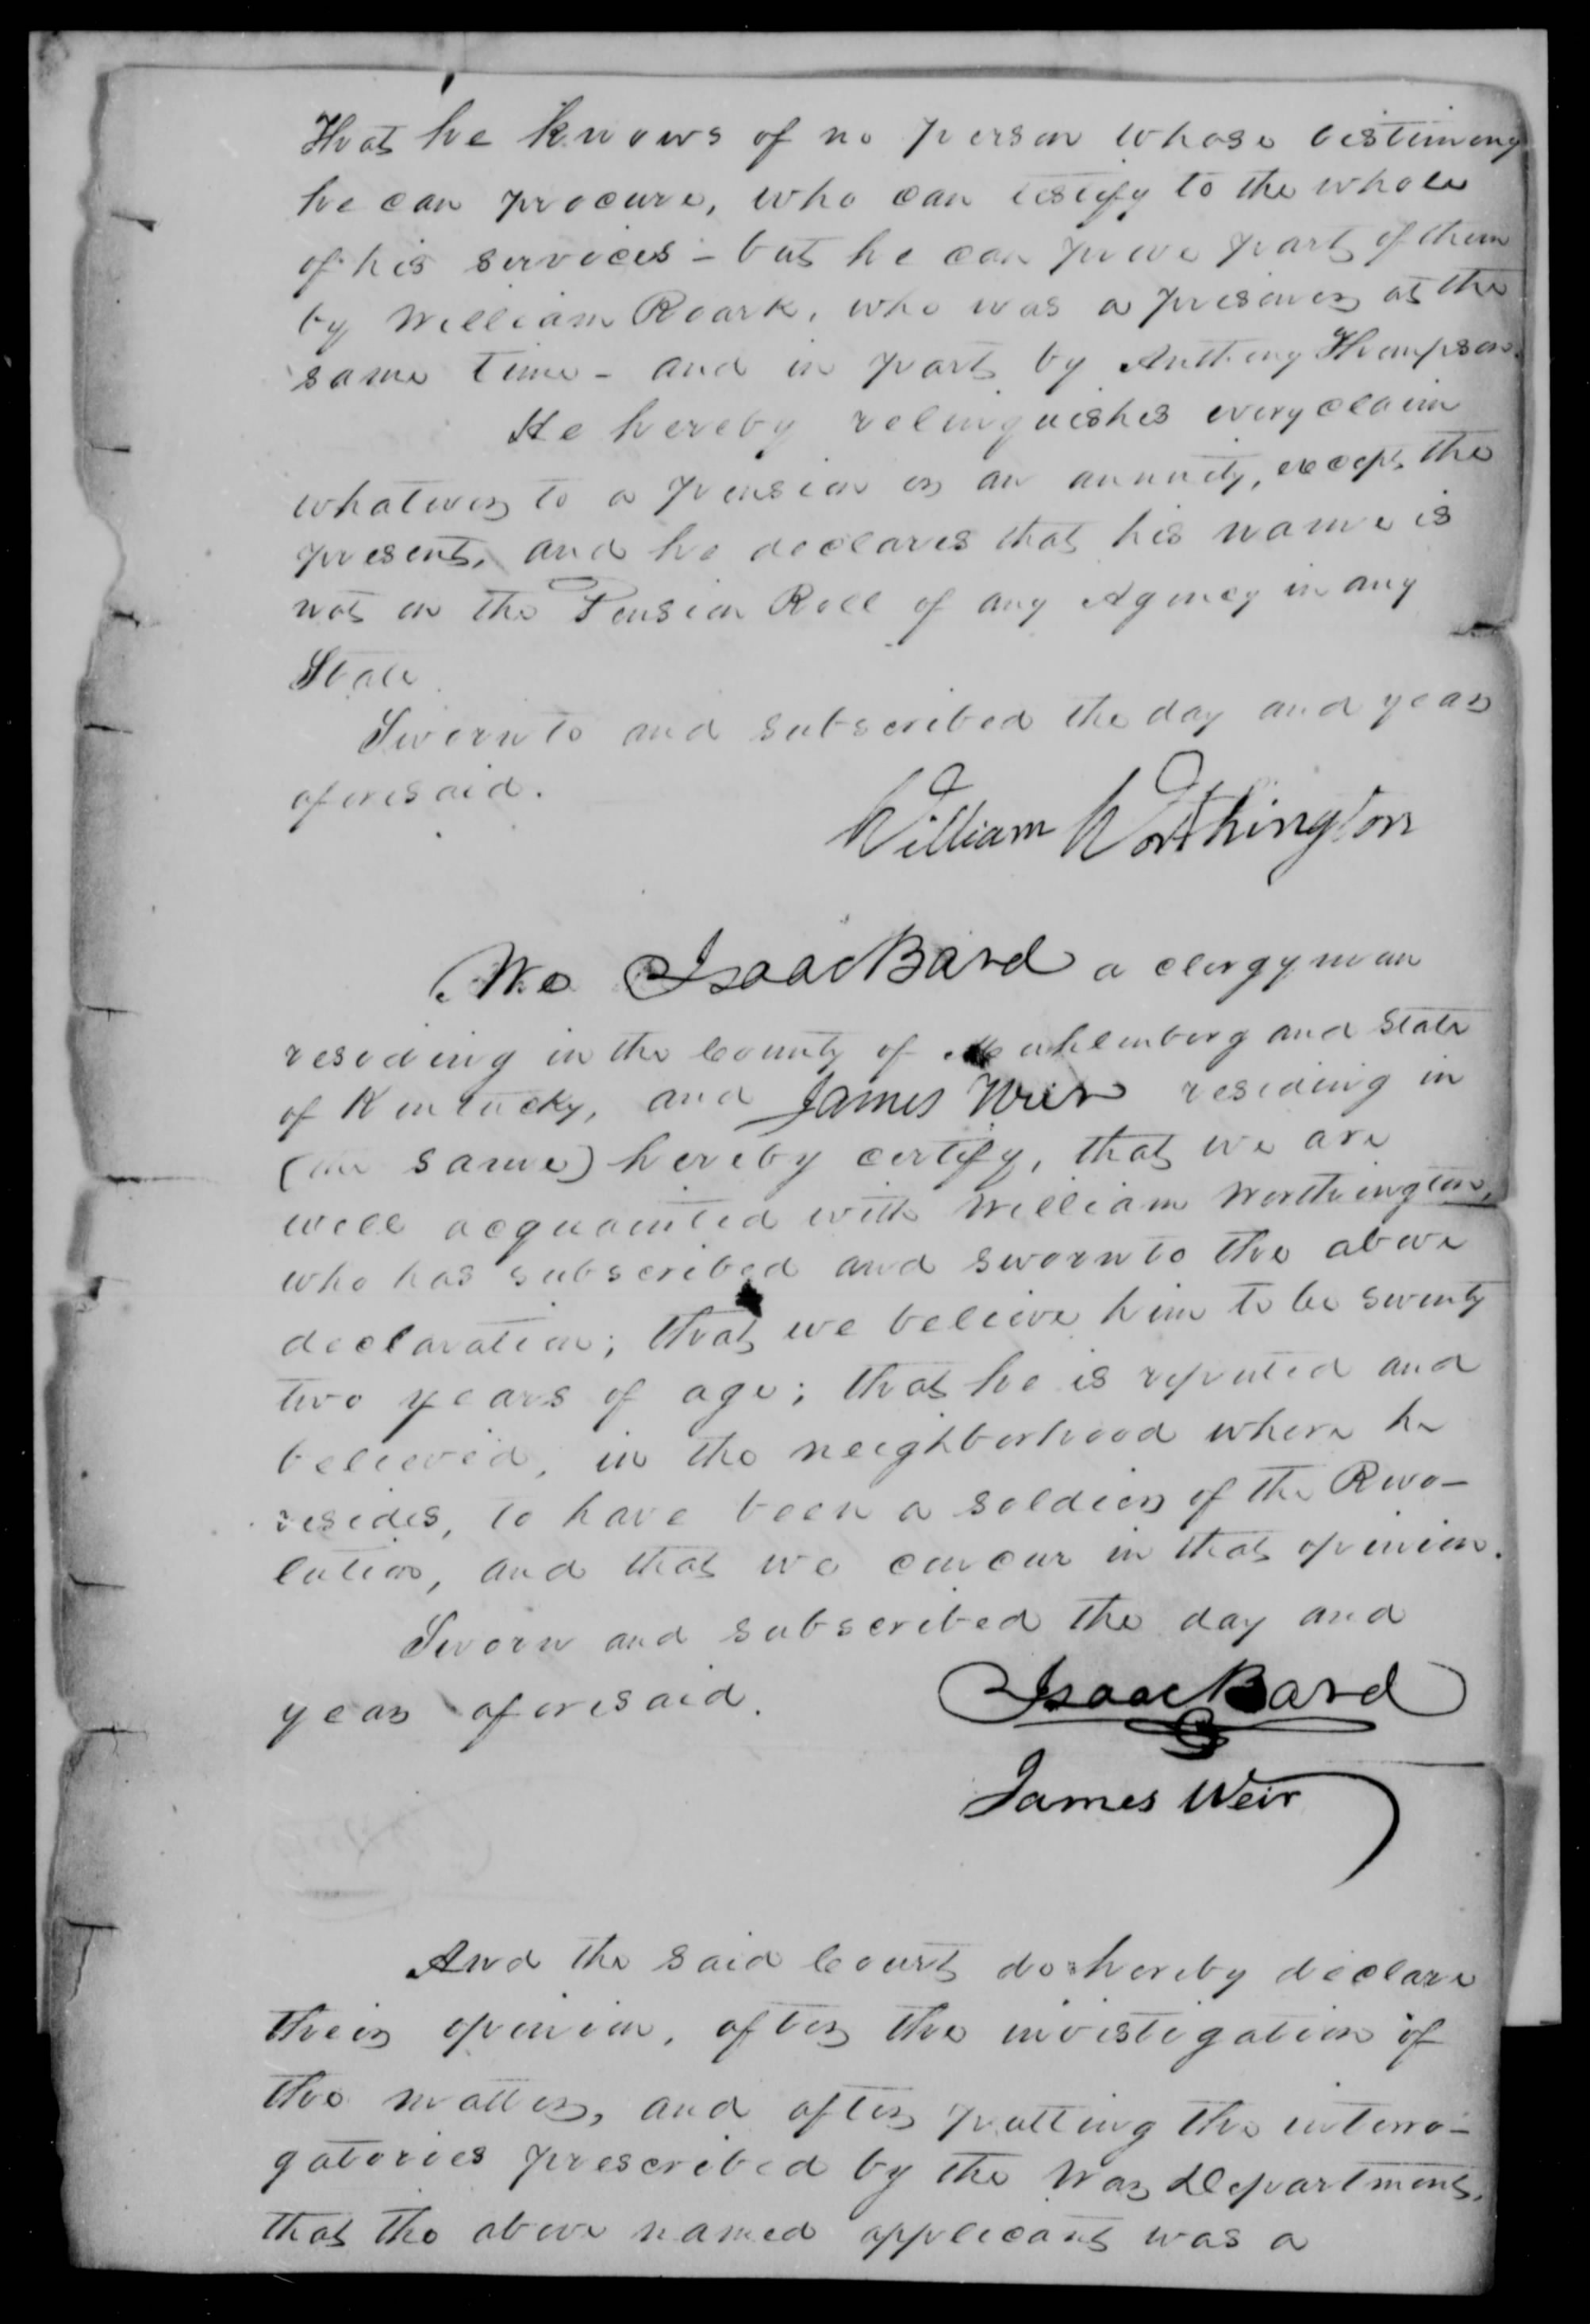 That he knows of no person whose testimony
he can procure, who can testify to the whole
of his services - but he can prove part of them
by William Roark, who was a prisoner at the
same time - and in part by Anthony Thompson.
He hereby relinquishes every claim
whatever to a pension or an annuity, except the
present, and he declares that his name is
not on the Pension Roll of any Agency in any
State
Sworn to and subscribed the day and year
aforesaid.
William Worthington
We Isaac Bard a clergyman
residing in the County of Muhlenburg and State
of Kentucky, and James Weir residing in
(the same) hereby certify, that we are
well acquainted with William Worthington,
who has subscribed and sworn to the above
declaration; that we believe him to be seventy
two years of age; that he is reputed and
believed, in the neighborhood where he
resides, to have been a soldier of the Revo-
lution, and that we concur in that opinion.
Sworn and subscribed the day and
year aforesaid.
Isaac Bard
James Weir
And the said Court do hereby declare
their opinion, after the investigation of
the matter, and after putting the interro-
gatories prescribed by the War Department,
that the above named applicant was a